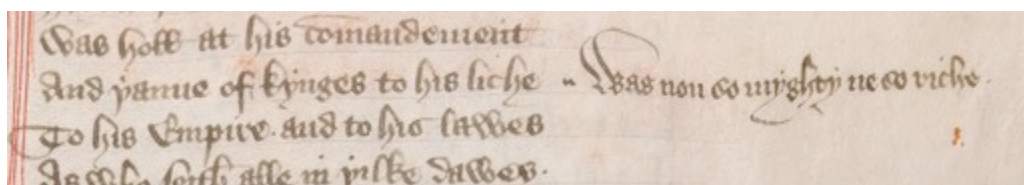 Was holl at his comaundement
And þanne of kynges to his liche
Was non so myghty ne so riche.
To his Empire. and to his lawes
As who seith alle in þilke dawes.